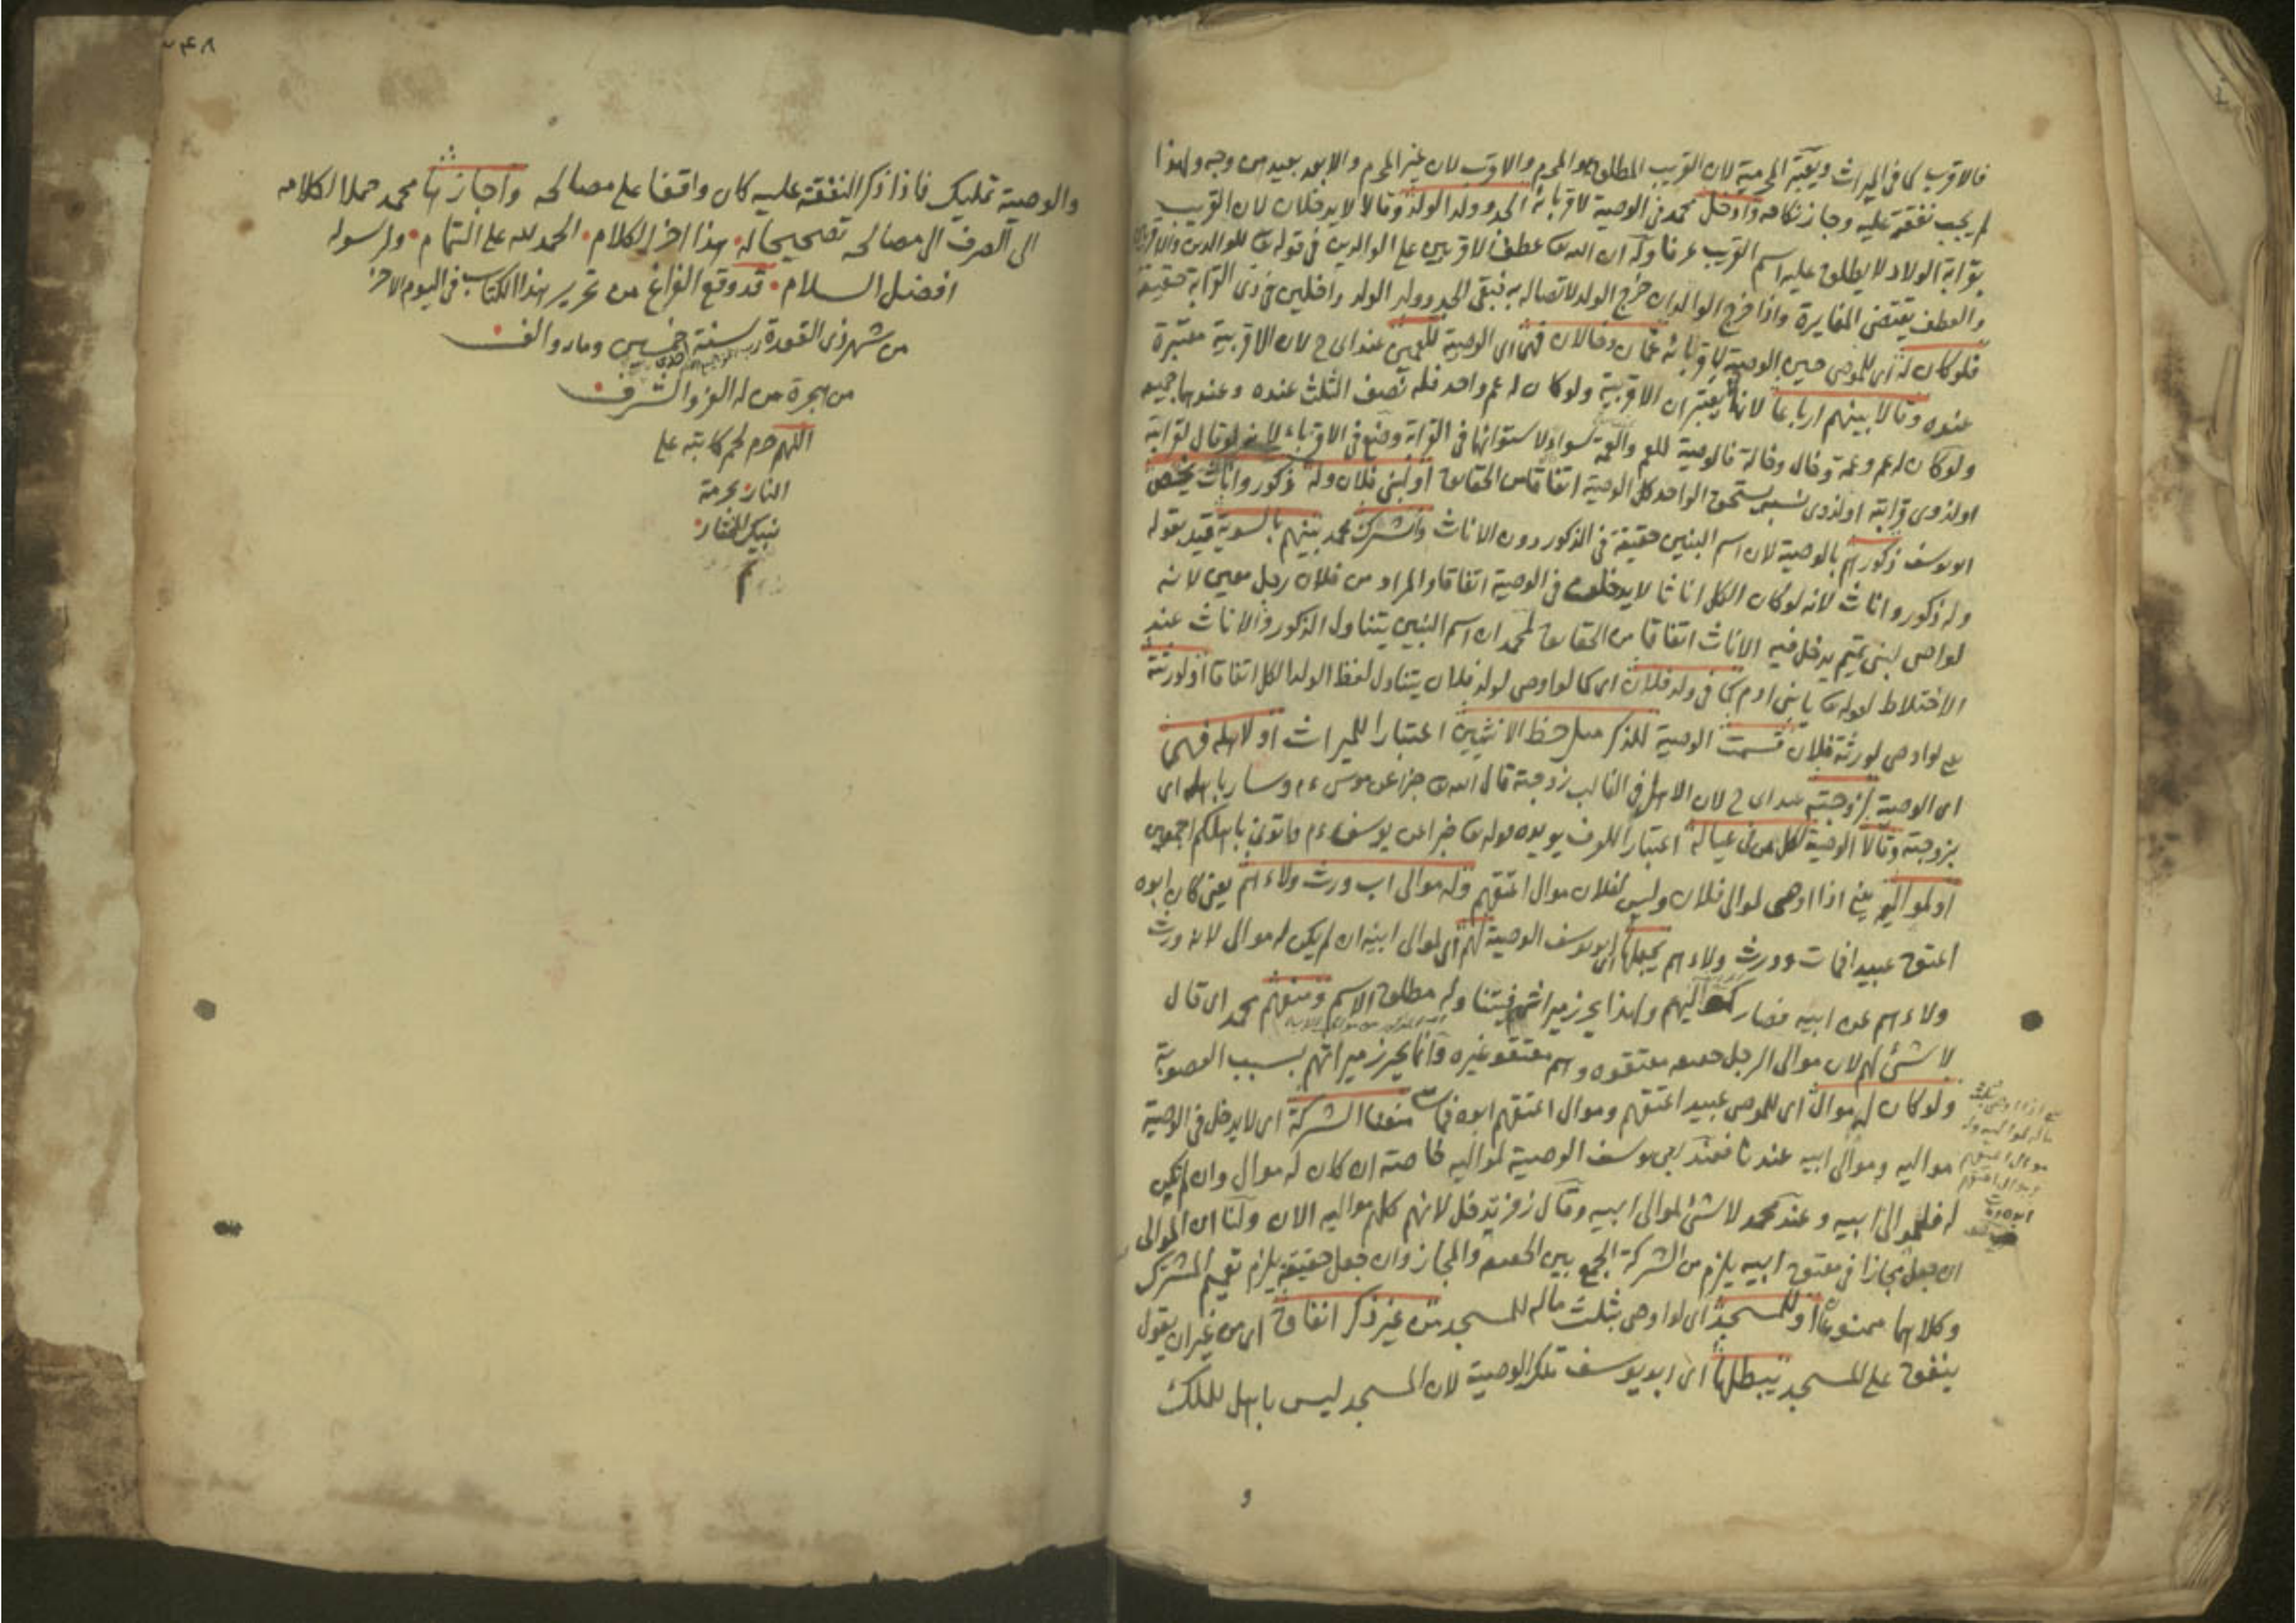 فالاقرب كما فى الميراث ويعتبر المحرمية لان القريب المطلق هو المحرم والاقرب لان غير المحرم والابعد بعيد من وجه ولهذا
لم يجب نفقته عليه وجاز نكاحه وادخل محمد فى الوصية لاقربائه الجد وولد الولد وقالا لا يدخلان لان القريب
بقرابة الولاد لا يطلق عليه اسم القريب عرفا وله ان الله تعا عطف الاقربين على الوالدين فى قوله تعا للوالدين والاقربين
والعطف يقتضى المغايرة واذا خرج الوالدان خرج الولد لاتصاله به فبقى الجد وولد الولد داخلين فى ذى القرابة حقيقة
فلو كان له اى للموصى حين الوصية لاقربائه عمان وخالان فهى اى الوصية للعمين عند ابى ح لان الاقربية معتبرة
عنده وقالا بينهم ارباعا لانهما لم يعتبران الاقربية ولو كان له عم واحد فله نصف الثلث عنده وعندهما جميعه
ولو كان له عم وعمة وخال وخالة فالوصية للعم والعمة سواء لاستوائهما فى القرابة وضع فى الاقرباء لانه لو قال لقرابته
او لذوى قرابته او لذوى نسبى يستحق الواحد كل الوصية اتفاقا من الحقايق او لبنى فلان وله ذكور واناث يخص
ابو يوسف ذكورهم بالوصية لان اسم البنين حقيقة فى الذكور دون الاناث واشرك محمد بينهم بالسوية قيد بقوله
وله ذكور واناث لانه لو كان الكل اناثا لا يدخلن فى الوصية اتفاقا والمراد من فلان رجل معين لانه
لو اوصى لبنى تميم يدخل فيه الاناث اتفاقا من الحقايق لمحمد ان اسم البنين يتناول الذكور والاناث عند
الاختلاط لقوله تعا يا بنى ادم كما فى ولد فلان اى كما لو اوصى لولد فلان يتناول لفظ الولد الكل اتفاقا او لورثته
يعنى لو اوصى لورثة فلان قسمت الوصية للذكر مثل حظ الانثيين اعتبارا للميراث او لاهله فهى
اى الوصية لزوجته عند ابى ح لان الاهل فى الغالب زوجته قال الله تعا خبرا عن موسى ءم وسار باهله اى
بزوجته وقالا الوصية لكل من فى عياله اعتبارا للعرف يؤيده قوله تعا خبرا عن يوسف ءم واتونى باهلكم اجمعين
او لمواليه يعنى اذا اوصى لموالى فلان وليس لفلان موال اعتقهم وله موالى اب ورث ولاءهم يعنى كان ابوه
اعتق عبيدا فمات وورث ولاءهم يجعلها ابو يوسف الوصية لهم اى لموالى ابيه ان لم يكن له موالى لانه ورث
ولاءهم عن ابيه فصار كمواليهم ولهذا يحرز ميراثهم فيتناوله مطلق الاسم ومنعهم محمد اى قال
لا شئ لهم لان موالى الرجل حقيقة معتقوه وهم معتقو غيره وانما يحرز ميراثهم بسبب العصوبة
ولو كان له موال اى للموصى عبيد اعتقهم وموال اعتقهم ابوه فمات منعنا الشركة اى لا يدخل فى الوصية
مواليه وموالى ابيه عندنا فعند ابى يوسف الوصية لمواليه خاصة ان كان له موال وان لم يكن
له فلموالى ابيه وعند محمد لا شئ لموالى ابيه وقال زفر يدخل لانهم كلهم مواليه الان ولنا ان الموالى
ان جعل مجازا فى معتق ابيه يلزم من الشركة الجمع بين الحقيقة والمجاز وان جعل حقيقة يلزم تعميم المشترك
وكلاهما ممنوعان او للمسجد اى لو اوصى بثلث ماله للمسجد من غير ذكر انفاق اى من غير ان يقول
ينفق على المسجد يبطلها اى ابو يوسف تلك الوصية لان المسجد ليس باهل للملك
والوصية تمليك فاذا ذكر النفقة عليه كان واقفا على مصالحه واجازها محمد حملا لكلامه
الى الصرف الى مصالحه تصحيحا له هذا اخر الكلام الحمد لله على التمام ولرسوله
افضل السلام قد وقع الفراغ من تحرير هذا الكتاب فى اليوم الاخر
من شهر ذى القعدة سنة خمسين وماه والف
من هجرة من له العز والشرف
اللهم حرم لحم كاتبه على
النار بحرمة
نبيك المختار
م